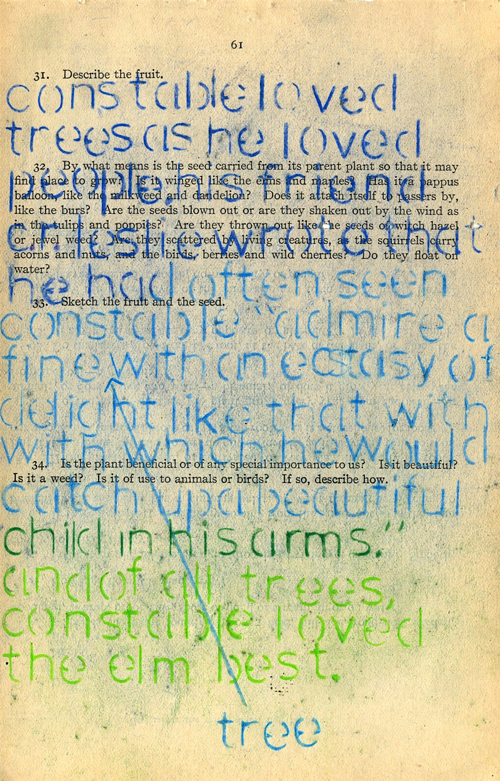 61
31. Describe the fruit.
constable loved
trees as he loved
32. By what means is the seed carried from its parent plant so that it may
find place to grow? Is it winged like the elms and maples? Has it a pappus
balloon, like the milkweed and dandelion? Does it attach itself to passers by,
like the burs? Are the seeds blown out or are they shaken out by the wind as
in the tulip and poppies? Are they thrown out like the seeds of witch hazel
or jewel weed? Are they scattered by living creatures, as the squirrels carry
acorns and nuts, and the birds, berries and wild cherries? Do they float on
water?
people his friend
cr leslie wrote that
he had often seen
33. Sketch the fruit and the seed.
constable "admire a
fine with an ecstasy of
delight like that with
with which he would
34. Is the plant beneficial or of any special importance to us? Is it beautiful?
Is it a weed? Is it of use to animals or birds? If so, describe how.
catch up a beautiful
child in his arms."
and of all trees,
constable loved
the elm best.
tree